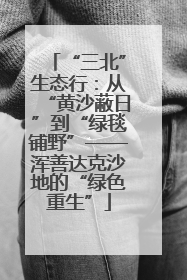 「“三北”
生态行：从
“黄沙蔽日
”到“绿毯
铺野”——
浑善达克沙
地的“绿色
重生”」